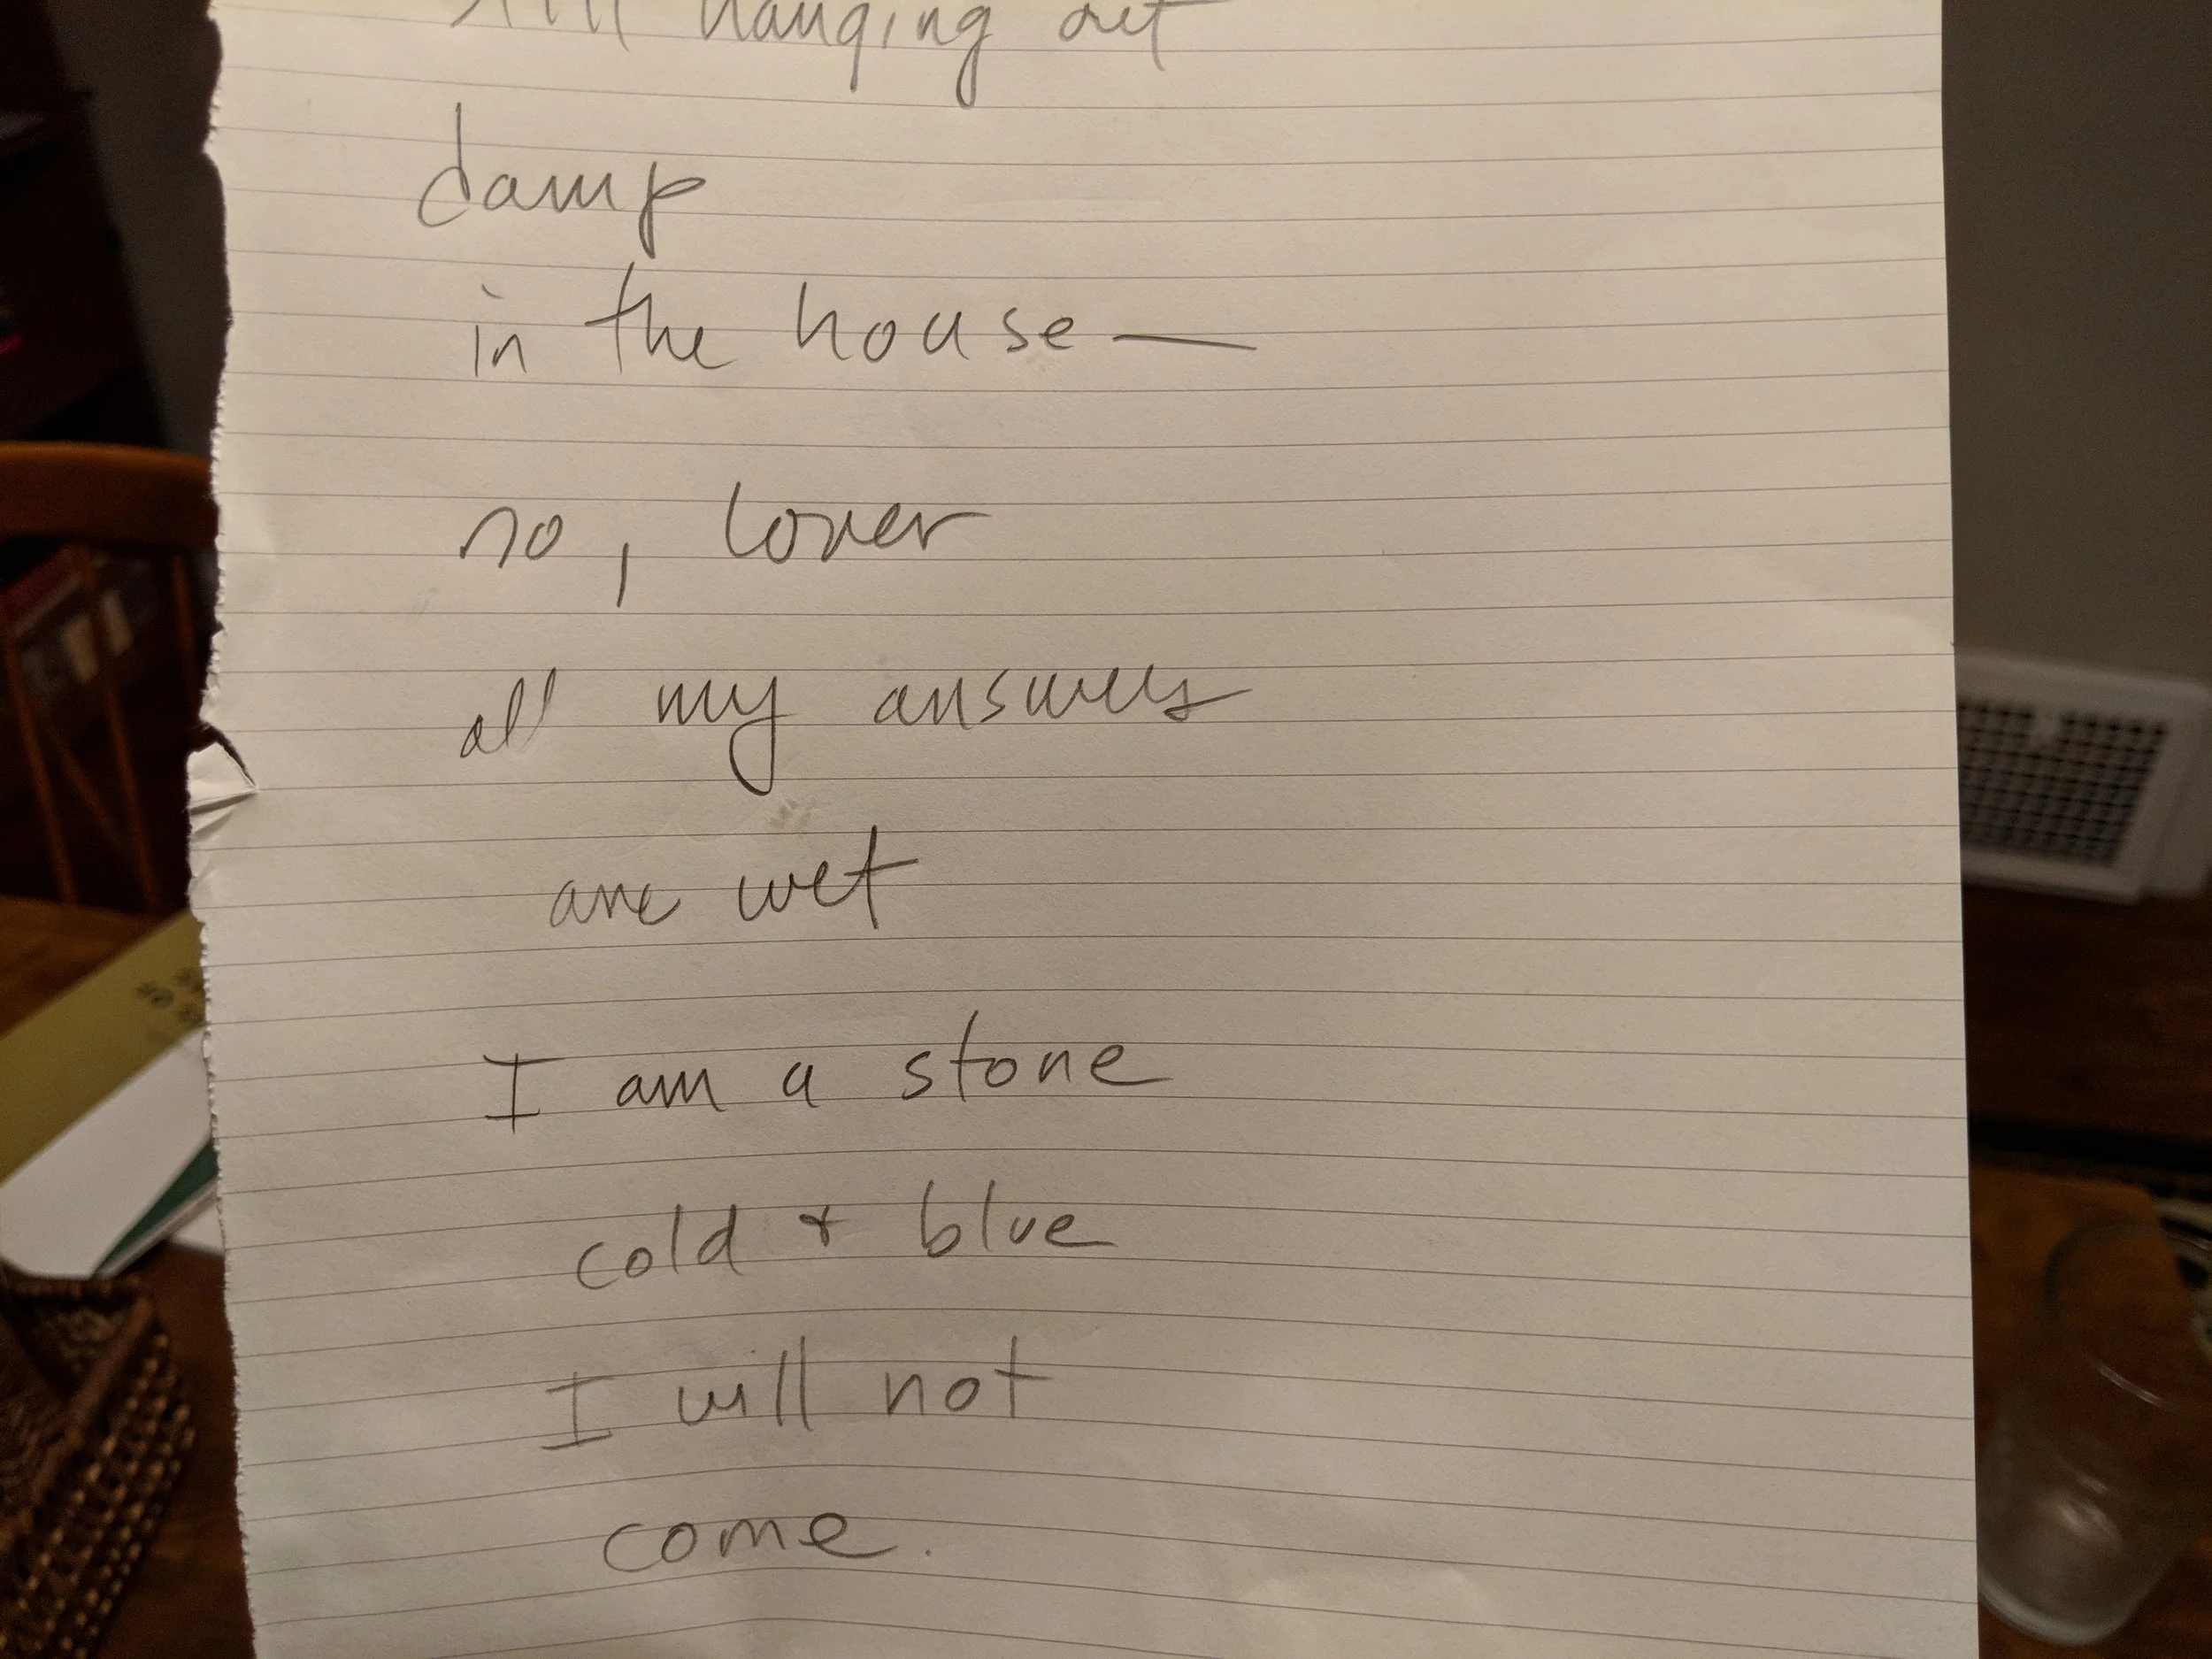 still hanging out
damp
in the house —
no, lover
all my answers
are wet
I am a stone
cold + blue
I will not
come.
OR